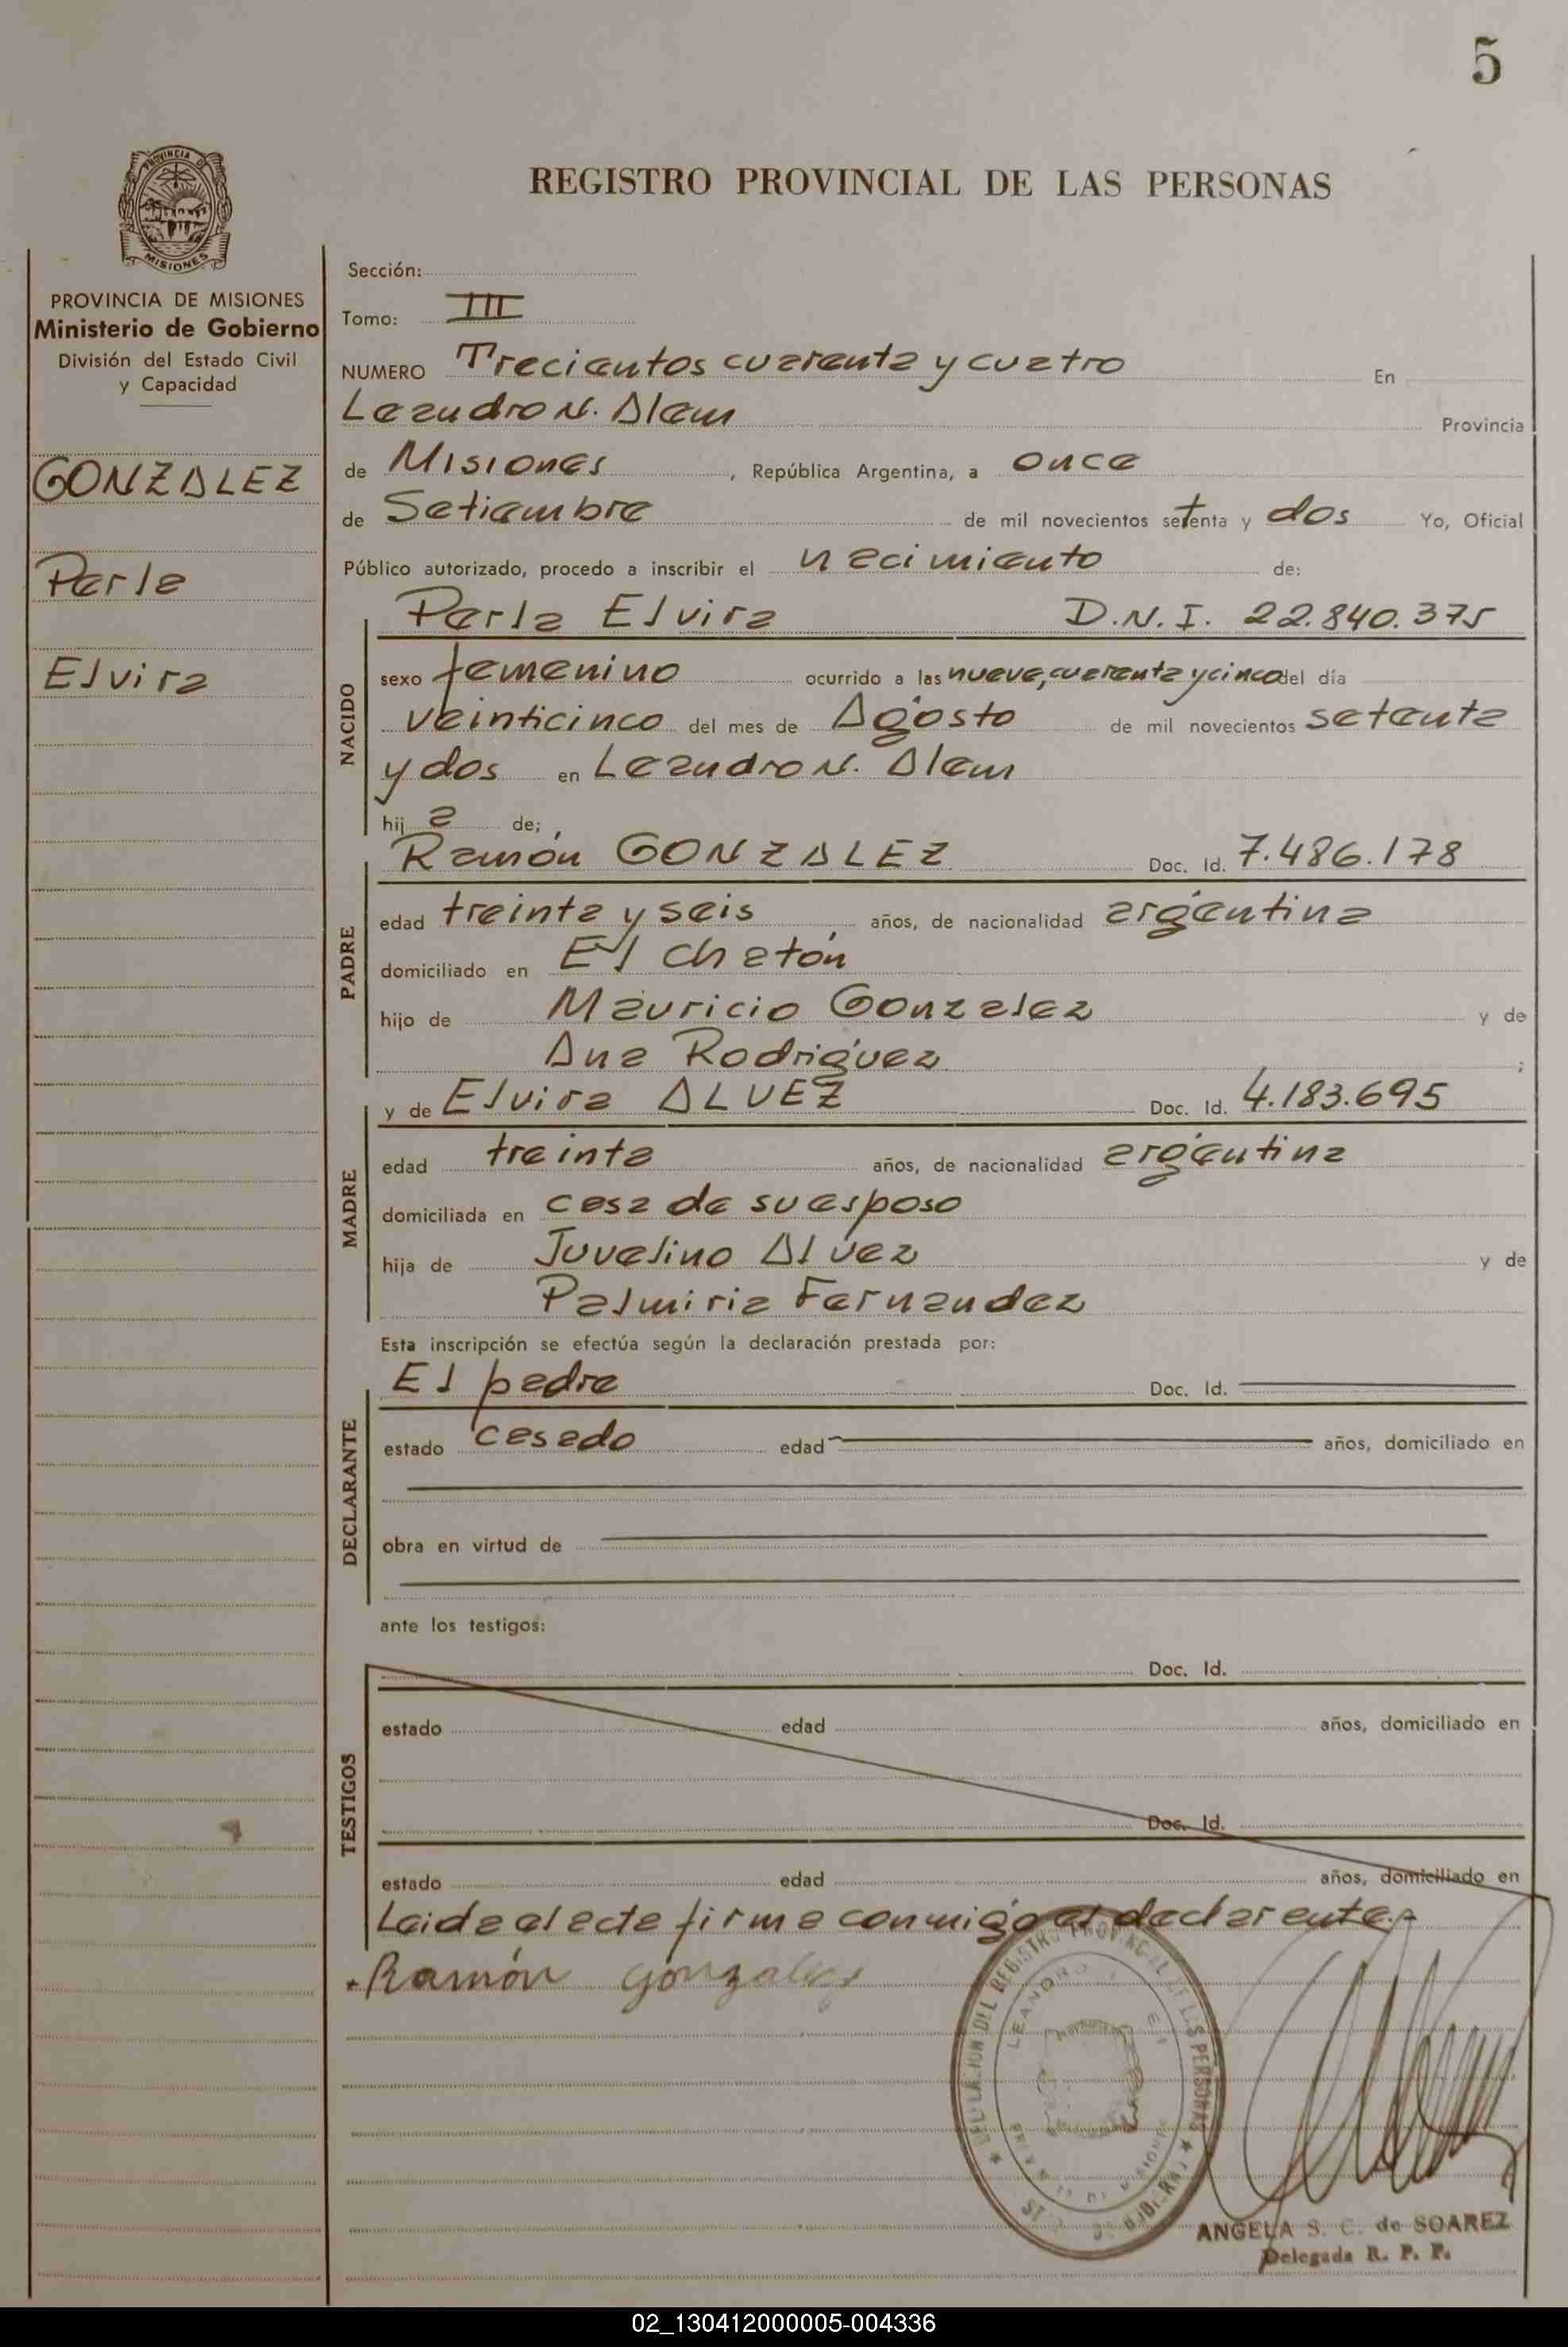 5
REGISTRO PROVINCIAL DE LAS PERSONAS
PROVINCIA DE
MISIONES
PROVINCIA DE MISIONES
Ministerio de Gobierno
División del Estado Civil
y Capacidad
GONZALEZ
Perla
Elvira
Sección:
Tomo: III
NUMERO Trecientos cuarenta y cuatro En
Leandro N. Alem Provincia
de Misiones, República Argentina, a once
de Setiembre de mil novecientos setenta y dos Yo, Oficial
Público autorizado, procedo a inscribir el nacimiento de:
NACIDO
Perla Elvira D.N.I. 22.840.375
sexo femenino ocurrido a las nueve, cuarenta y cinco del día
veinticinco del mes de Agosto de mil novecientos setenta
y dos en Leandro N. Alem
hija de;
PADRE
Ramón GONZALEZ Doc. Id. 7.486.178
edad treinta y seis años, de nacionalidad argentina
domiciliado en El Chatón
hijo de Mauricio Gonzalez y de
Ana Rodriguez ;
MADRE
y de Elvira ALVEZ Doc. Id. 4.183.695
edad treinta años, de nacionalidad argentina
domiciliada en casa de su esposo
hija de Juvelino Alvez y de
Palmiria Fernandez
Esta inscripción se efectúa según la declaración prestada por:
DECLARANTE
El padre Doc. Id.
estado casado edad años, domiciliado en
obra en virtud de
ante los testigos:
TESTIGOS
Doc. Id.
estado edad años, domiciliado en
Doc. Id.
estado edad años, domiciliado en
Leida el acta firma conmigo el declarante.-
Ramón Gonzalez
DEL REGISTRO PROVINCIAL DE LAS PERSONAS
LEANDRO
MISIONES
ANGELA S. C. de SOAREZ
Delegada R. P. P.
02_130412000005-004336